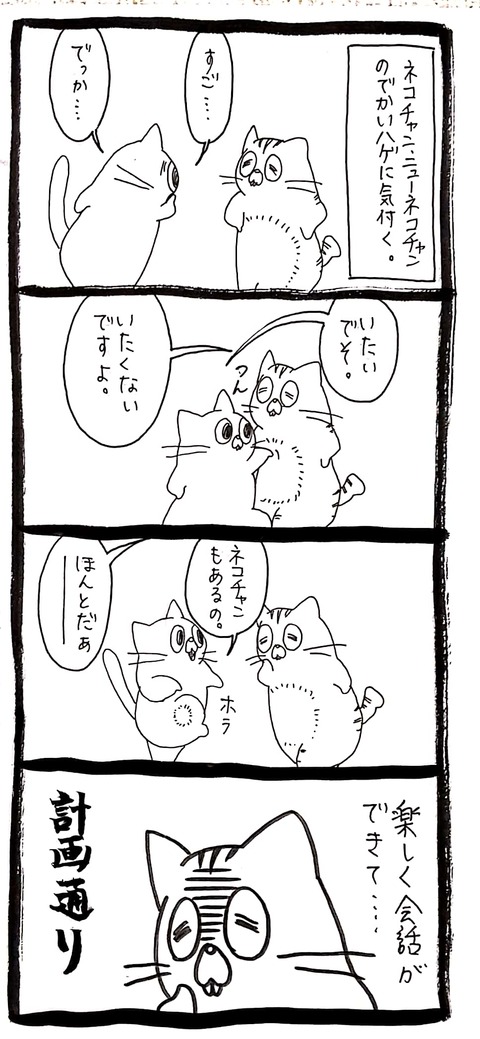 ネコチャン、ニューネコチャン
のでかいハゲに気付く。
すご……
でっか…
いたい
でそ。
つん
いたくない
ですよ。
ネコチャン
もあるの。
ホラ
ほんとだぁ――
楽しく会話が
できて……
計画通り